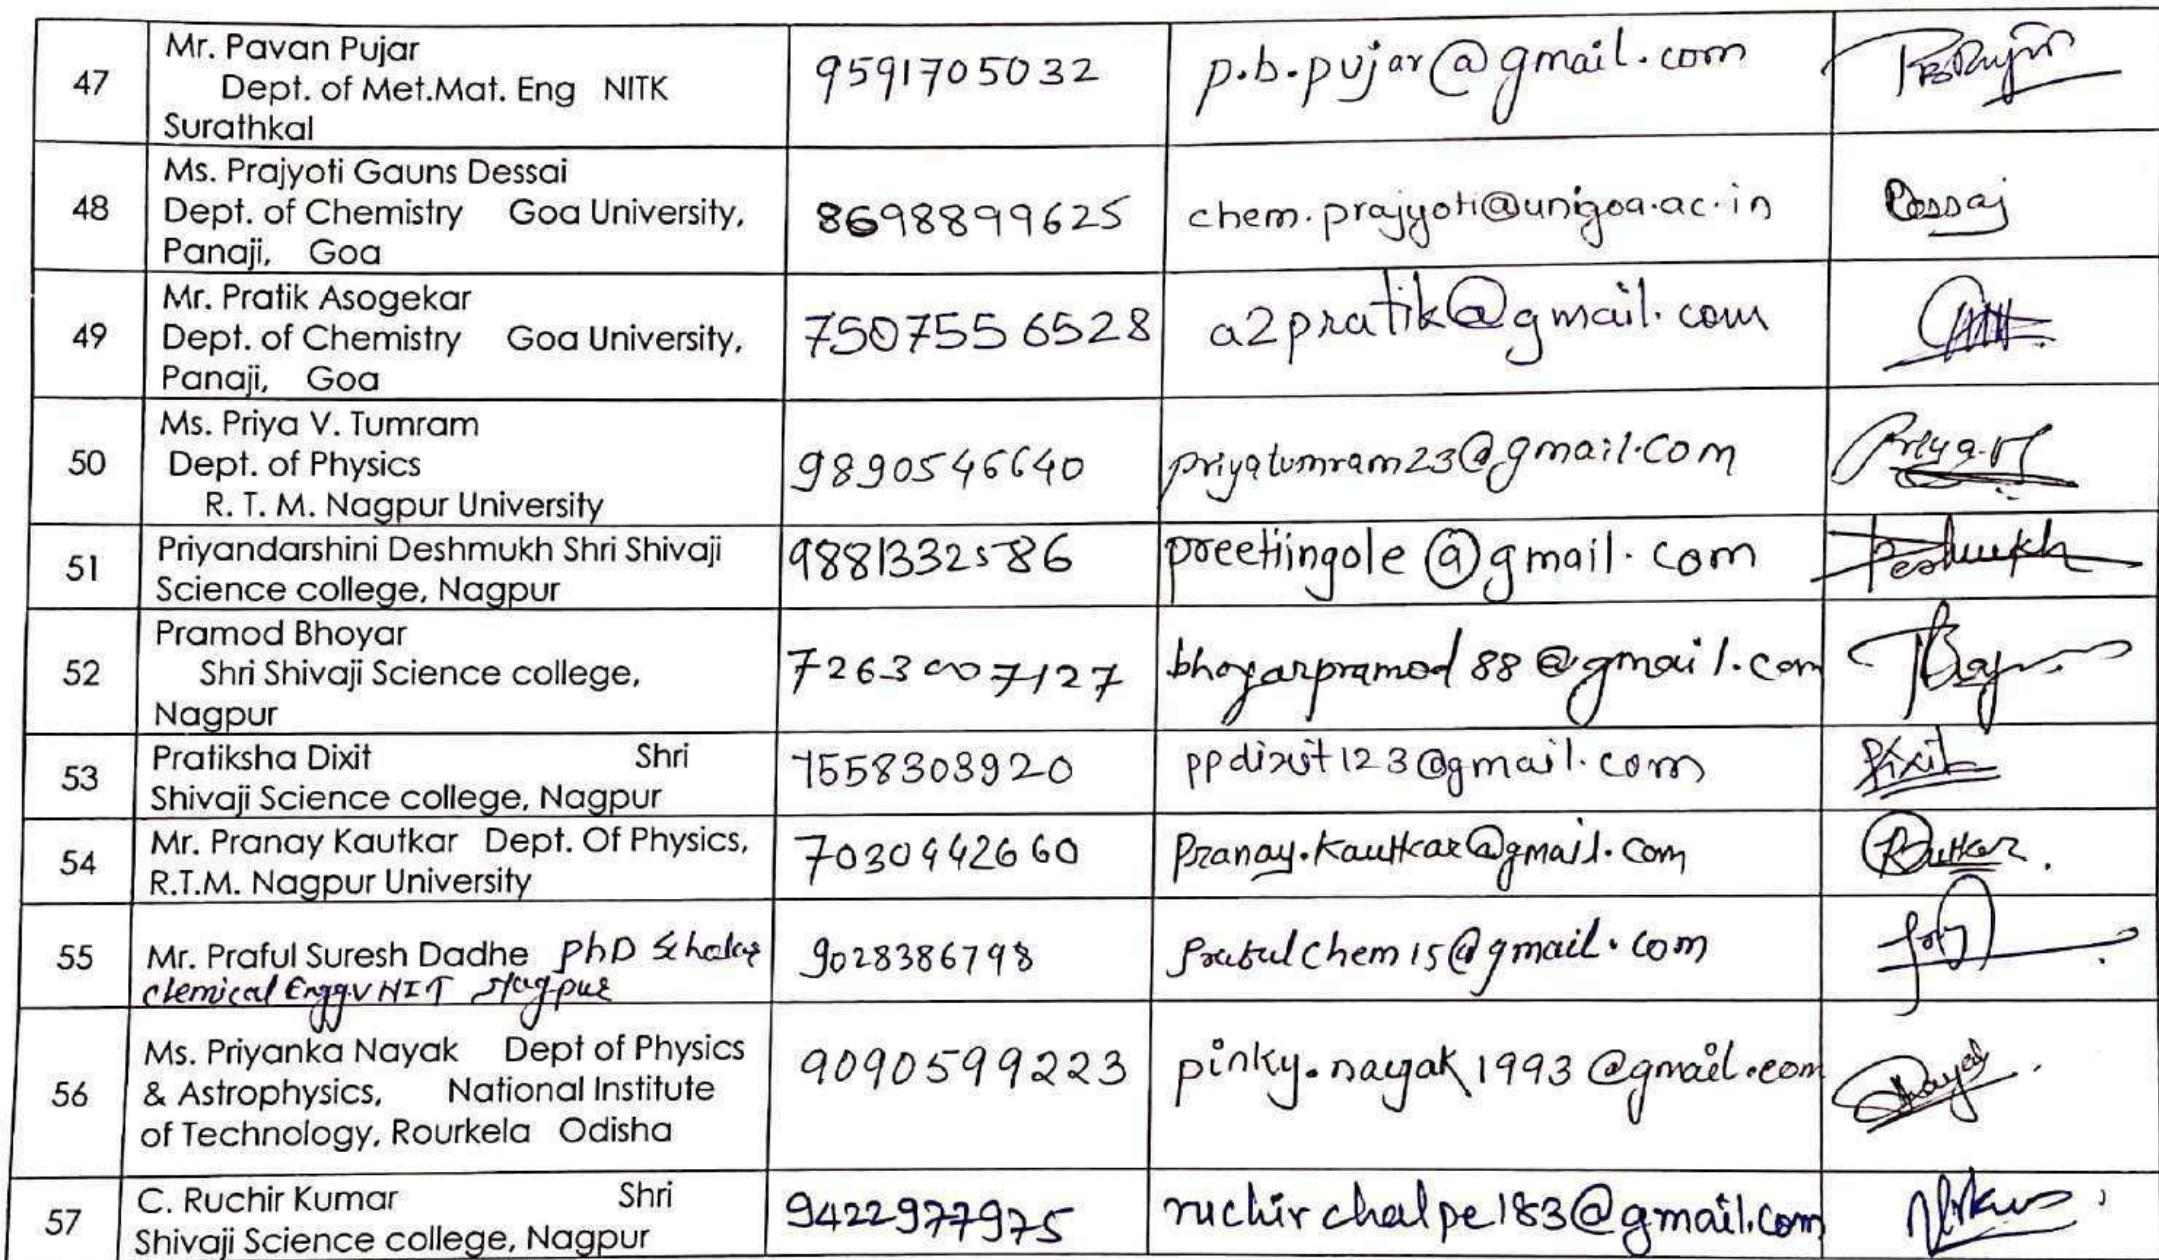 47
Mr. Pavan Pujar
Dept. of Met.Mat. Eng NITK
Surathkal
9591705032
p.b.pujar@gmail.com
48
Ms. Prajyoti Gauns Dessai
Dept. of Chemistry Goa University,
Panaji, Goa
8698899625
chem.prajyoti@unigoa.ac.in
Dessai
49
Mr. Pratik Asogekar
Dept. of Chemistry Goa University,
Panaji, Goa
7507556528
a2pratik@gmail.com
50
Ms. Priya V. Tumram
Dept. of Physics
R. T. M. Nagpur University
9890546640
priyatumram23@gmail.com
51
Priyandarshini Deshmukh Shri Shivaji
Science college, Nagpur
9881332586
preetiingole@gmail.com
Deshmukh
52
Pramod Bhoyar
Shri Shivaji Science college,
Nagpur
7263007127
bhoyarpramod88@gmail.com
53
Pratiksha Dixit Shri
Shivaji Science college, Nagpur
7558303920
ppdixit123@gmail.com
Dixit
54
Mr. Pranay Kautkar Dept. Of Physics,
R.T.M. Nagpur University
7030442660
Pranay.kautkar@gmail.com
55
Mr. Praful Suresh Dadhe PhD Scholar
chemical Engg VNIT Nagpur
9028386798
prafulchem15@gmail.com
56
Ms. Priyanka Nayak Dept of Physics
& Astrophysics, National Institute
of Technology, Rourkela Odisha
9090599223
pinky.nayak1993@gmail.com
57
C. Ruchir Kumar Shri
Shivaji Science college, Nagpur
9422977975
ruchirchalpe183@gmail.com